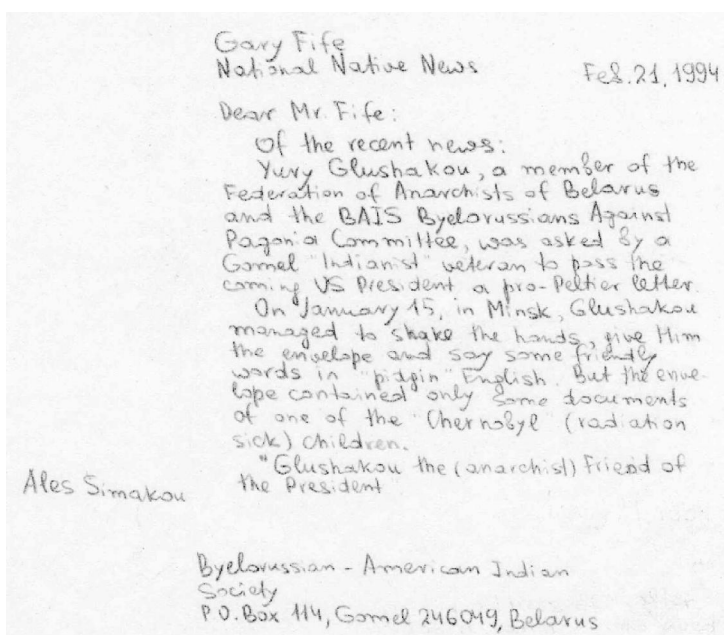 Gary Fife
National Native News
Feb. 21, 1994
Dear Mr. Fife:
Of the recent news:
Yury Glushakou, a member of the
Federation of Anarchists of Belarus
and the BAIS Byelorussians Against
Pagonia Committee, was asked by a
Gomel "Indianist" veteran to pass the
coming US President a pro-Peltier letter.
On January 15, in Minsk, Glushakou
managed to shake the hands, give Him
the envelope and say some friendly
words in "pidgin" English. But the enve-
lope contained only some documents
of one of the "Chernobyl" (radiation
sick) children.
"Glushakou the (anarchist) Friend of
the President"
Ales Simakou
Byelorussian - American Indian
Society
P.O. Box 114, Gomel 246049, Belarus